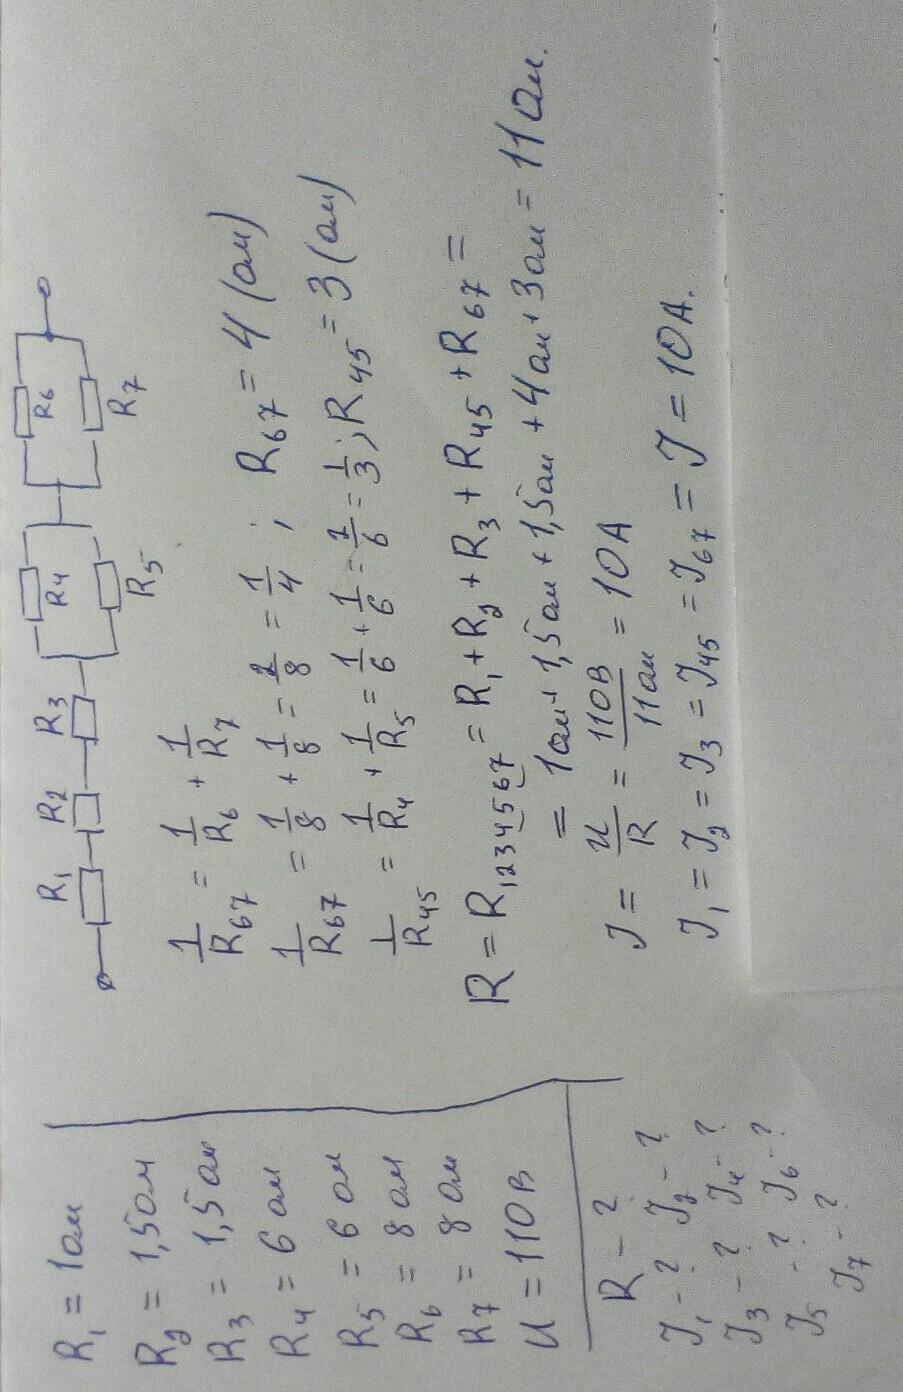 R₁ = 1Ом
R₂ = 1,5Ом
R₃ = 1,5Ом
R₄ = 6 Ом
R₅ = 6 Ом
R₆ = 8 Ом
R₇ = 8 Ом
U = 110 В
R - ?
J₁ - ? J₂ - ?
J₃ - ? J₄ - ?
J₅ - ? J₆ - ?
J₇ - ?
R₁ R₂ R₃ R₄ R₆
R₅ R₇
1/R₆₇ = 1/R₆ + 1/R₇
1/R₆₇ = 1/8 + 1/8 = 2/8 = 1/4 ; R₆₇ = 4 (Ом)
1/R₄₅ = 1/R₄ + 1/R₅ = 1/6 + 1/6 = 2/6 = 1/3; R₄₅ = 3 (Ом)
R = R₁₂₃₄₅₆₇ = R₁ + R₂ + R₃ + R₄₅ + R₆₇ =
= 1Ом + 1,5Ом + 1,5Ом + 4Ом + 3Ом = 11Ом.
J = U/R = 110В/11Ом = 10А
J₁ = J₂ = J₃ = J₄₅ = J₆₇ = J = 10А.